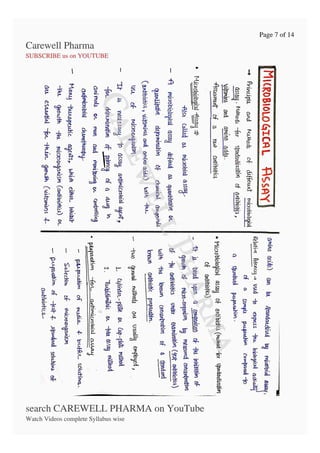 Page 7 of 14
Carewell Pharma
SUBSCRIBE us on YOUTUBE
MICROBIOLOGICAL ASSAY
→ Principles and methods of different microbiological
assay, methods for standardization of antibiotics,
vitamins and amino acids.
Assessment of a new antibiotic
• Microbiological assay :-
Also called as microbial assay.
– A microbiological assay defined as quantitative or
qualitative determination of chemical compounds
(antibiotics, vitamins and amino acids) with the
use of microorganism.
– It is necessary to assay antimicrobial agents,
for determination of potency of a drug in
animals or man and monitoring or controlling
antimicrobial chemotherapy.
– Many therapeutic agents, which either inhibit
the growth of the microorganism (antibiotics) or
are essential for their growth (vitamins &
amino acids) can be standardized by microbial assay.
potency is used to express the biological activity
of a sample preparation compared to
a standard preparation.
• Microbiological assay of antibiotics (method for standardization
of antibiotics)
It is based upon a comparison of the inhibition of
growth of micro-organisms by measured concentration
of the antibiotics under examination (test antibiotics)
with the known concentration of a standard
known antibiotic preparation.
– Two general methods are usually employed,
1. Cylinder-plate or cup-plate method
2. Turbidimetric or tube assay method
• preparation for antimicrobial assay
– preparation of media & buffer solutions.
– Selection of microorganism
– preparation of test & standard solutions of
antibiotics.
CAREWELL PHARMA
search CAREWELL PHARMA on YouTube
Watch Videos complete Syllabus wise